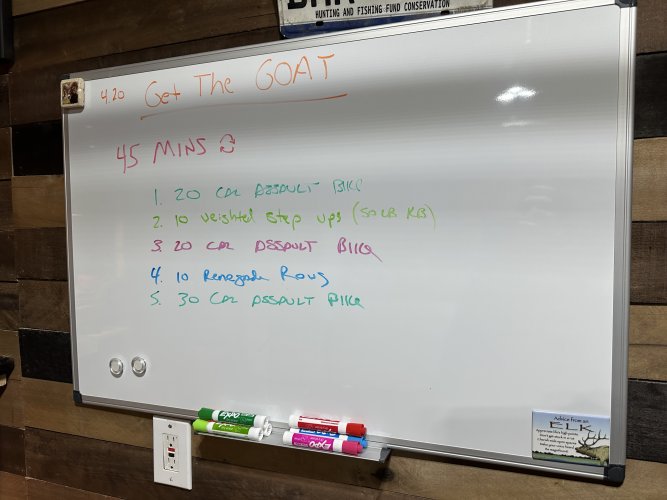 HUNTING AND FISHING FUND CONSERVATION
4.20 Get The GOAT
45 MINS
1. 20 CAL ASSAULT BIKE
2. 10 weighted step ups (50 LB KB)
3. 20 CAL ASSAULT BIKE
4. 10 Renegade Rows
5. 30 CAL ASSAULT BIKE
EXPO
Advice from an
ELK